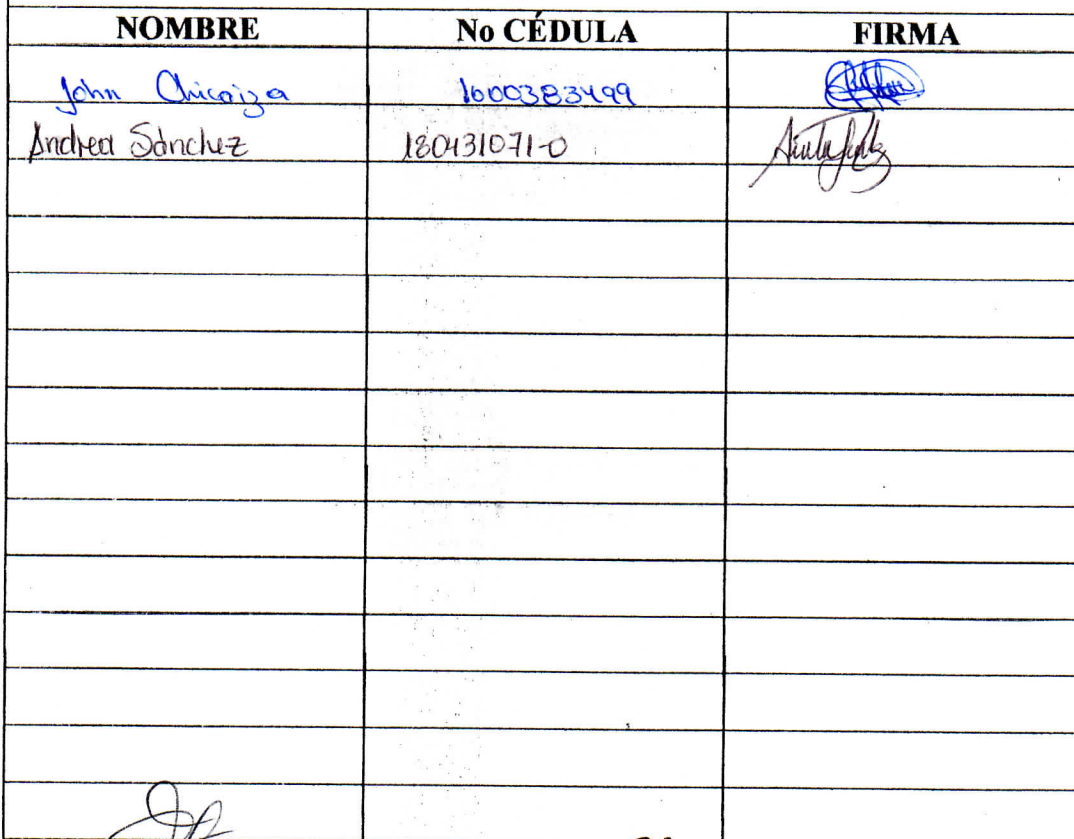 NOMBRE No CÉDULA FIRMA
John Chicaiza 1600383499
Andrea Sánchez 180431071-0